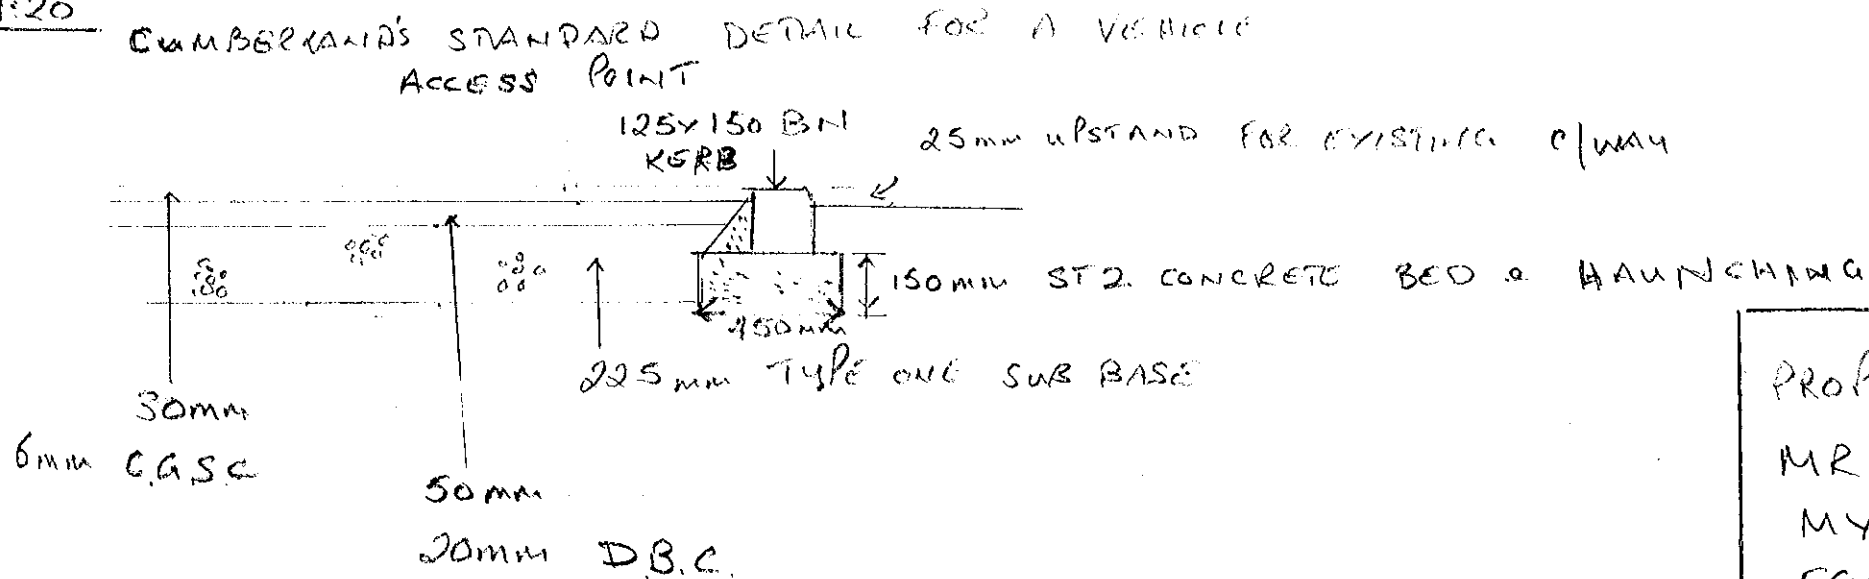 1:20
CUMBERLAND'S STANDARD DETAIL FOR A VEHICLE
ACCESS POINT
125x150 BN
KERB
25mm UPSTAND FOR EXISTING C/WAY
150mm ST2. CONCRETE BED & HAUNCHING
450mm
225mm TYPE ONE SUB BASE
30mm
6mm C.G.S.C
50mm
20mm D.B.C.
PROP
MR
MY